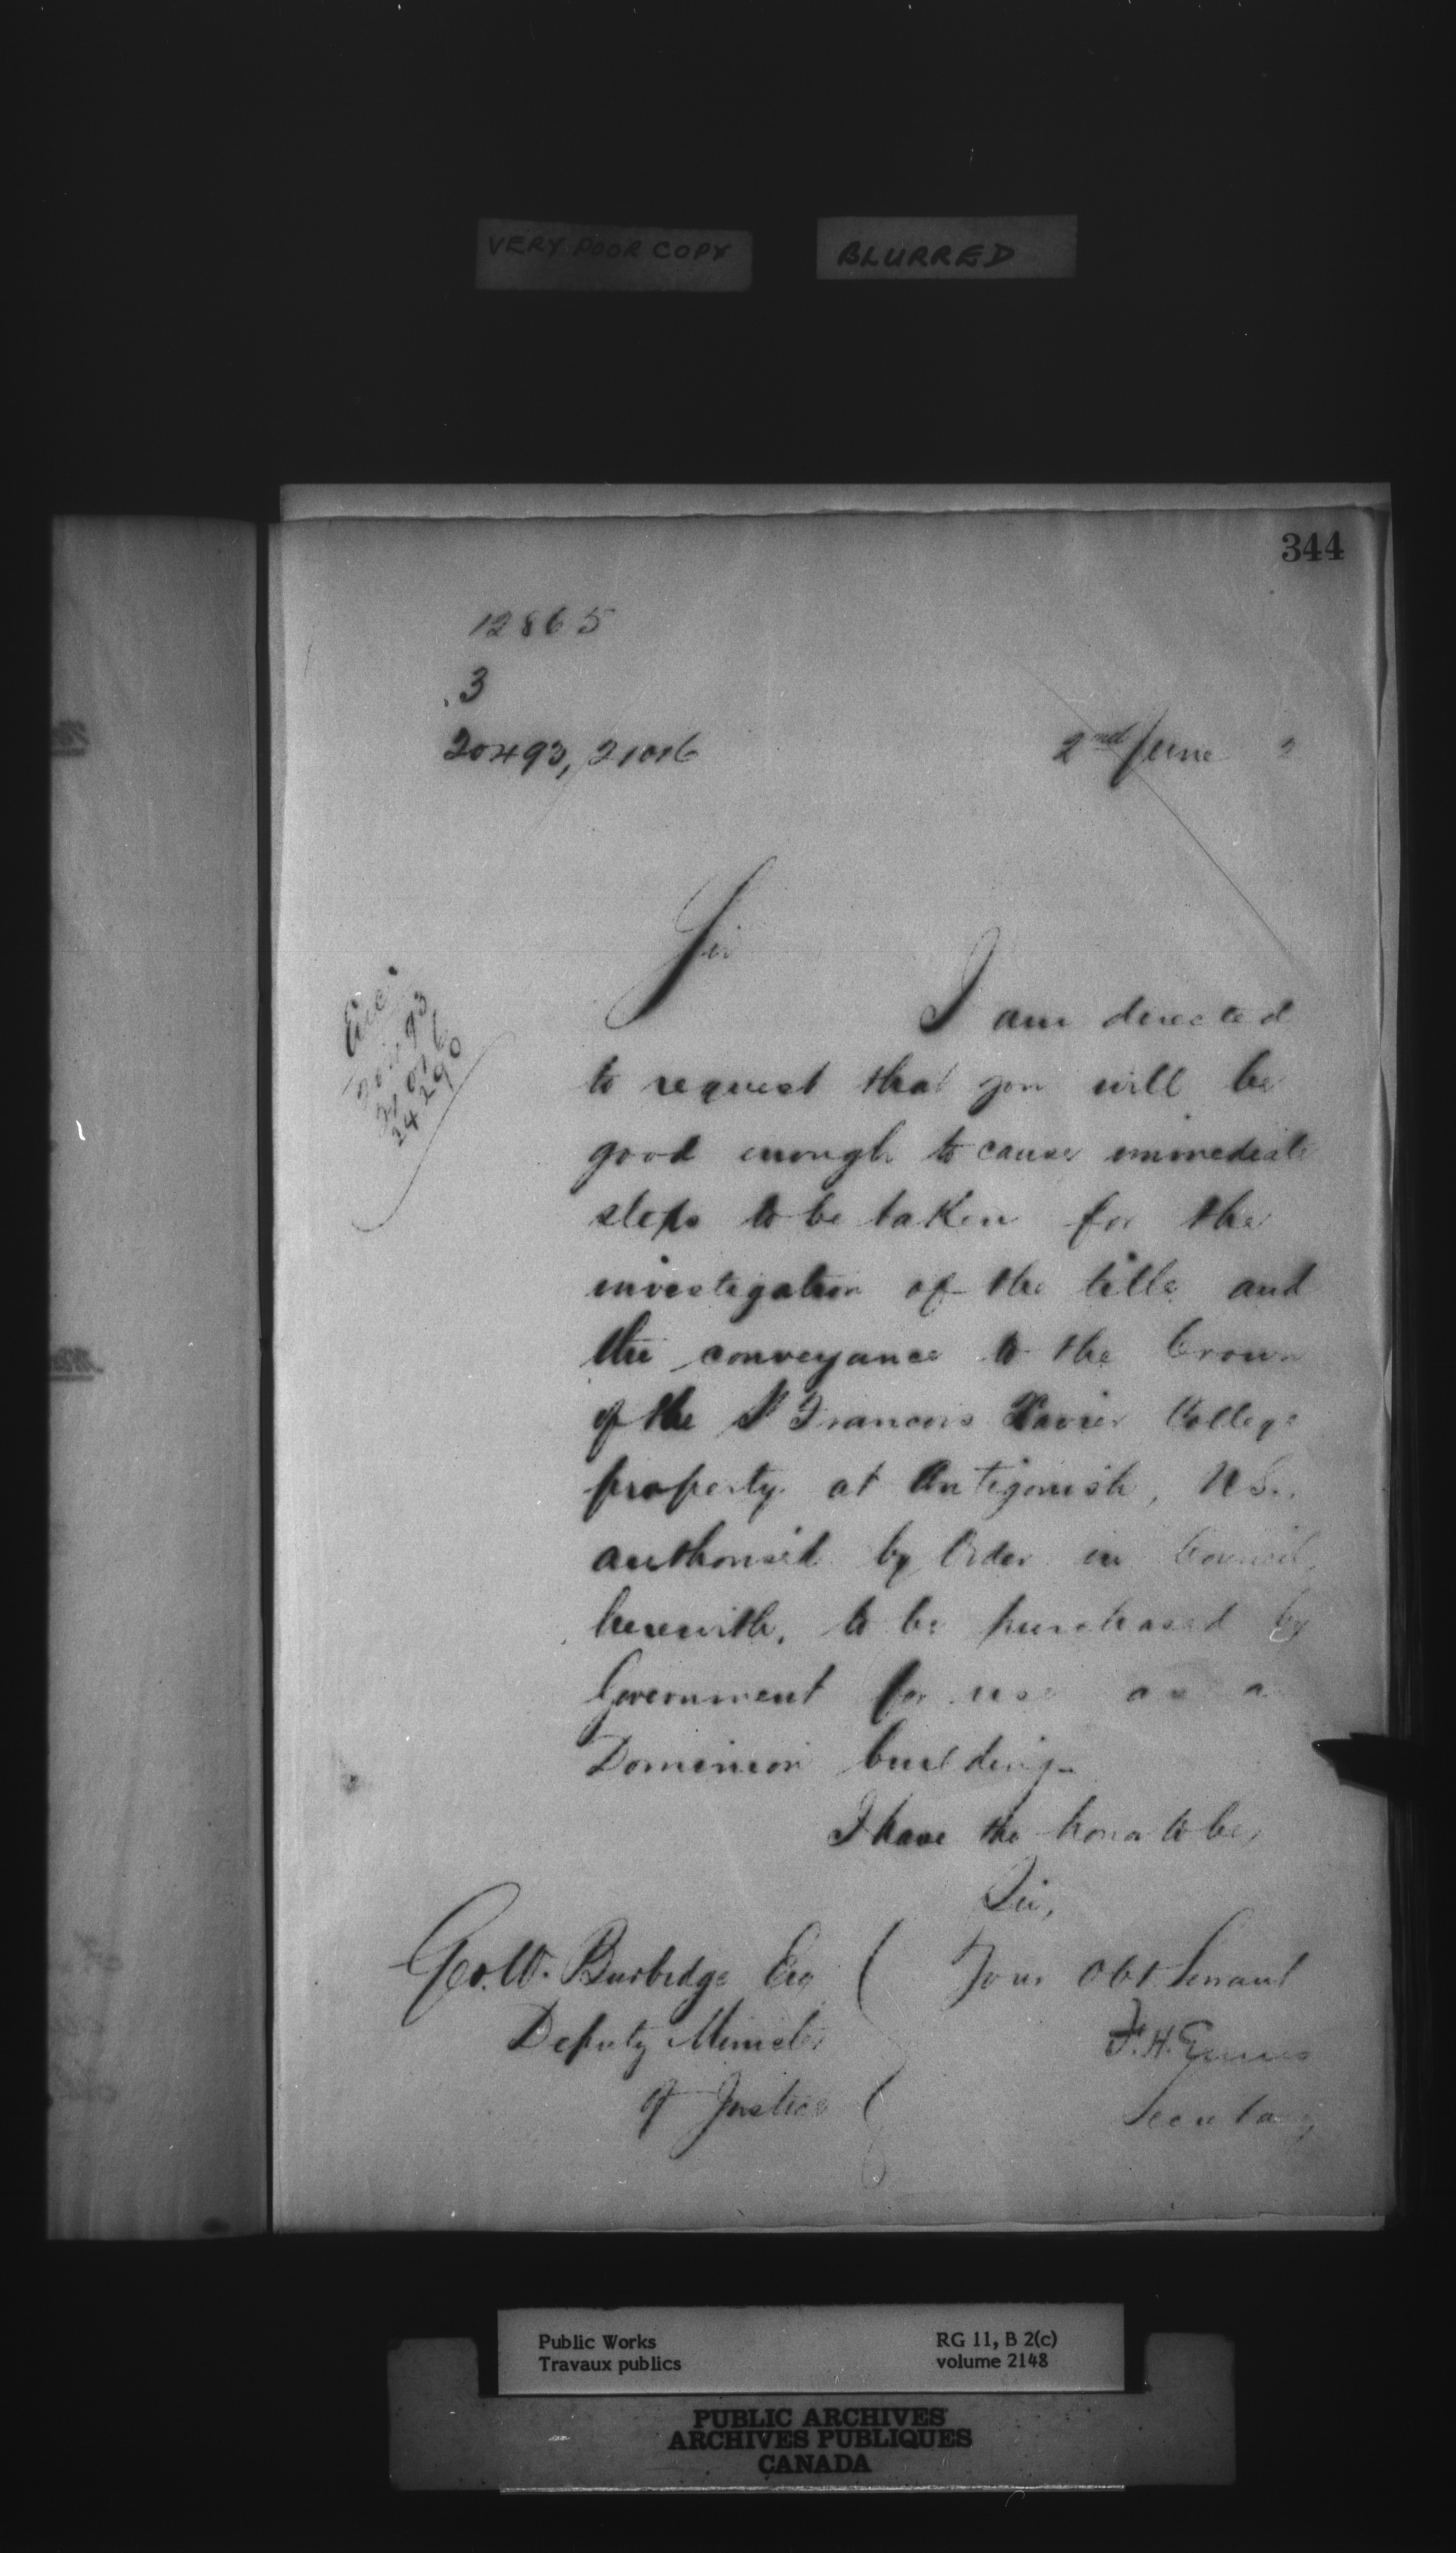 VERY POOR COPY
BLURRED
344
12865
3
20493, 21016
2nd June
Sir
I am directed
to request that you will be
good enough to cause immediate
steps to be taken for the
investigation of the title and
the conveyance to the Crown
of the St Francois Xavier College
property at Antigonish, N.S.
authorised by Order in Council,
herewith, to be purchased by
Government for use as a
Dominion building.
I have the honor to be,
Sir,
Your Obt Servant
F. H. Ennis
Secretary
Geo. W. Burbidge Esq
Deputy Minister
of Justice
Encl
20493
21016
24290
Public Works
Travaux publics
RG 11, B 2(c)
volume 2148
PUBLIC ARCHIVES
ARCHIVES PUBLIQUES
CANADA